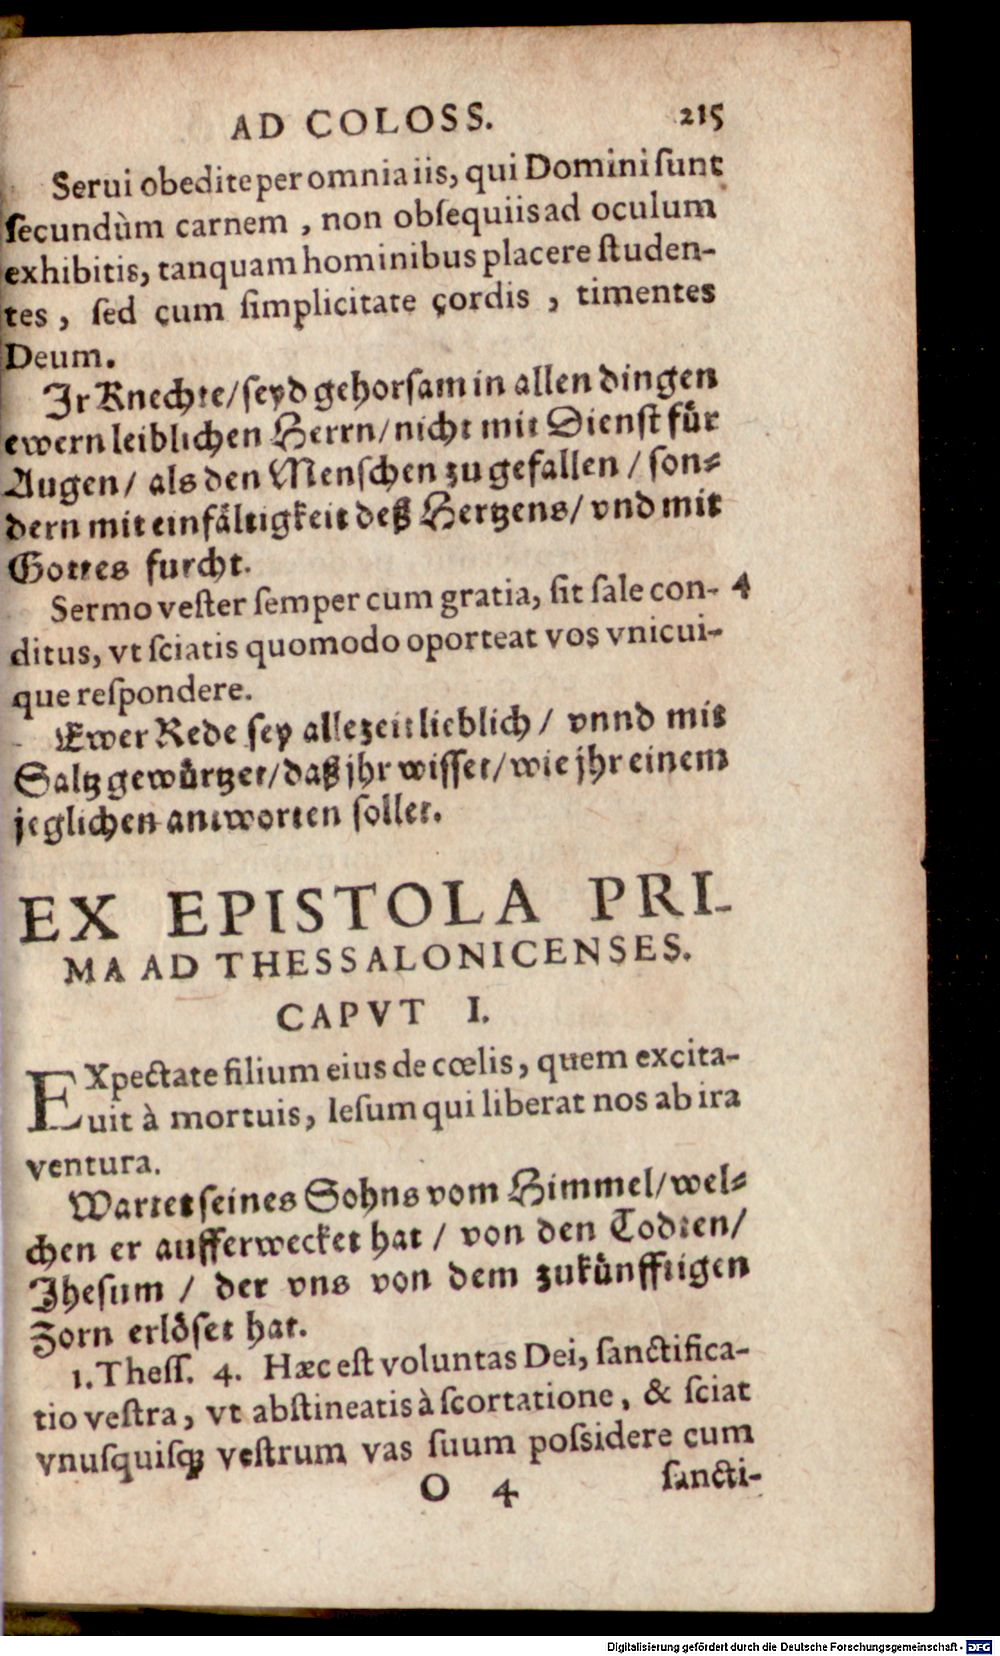 AD COLOSS. 215
Serui obedite per omnia iis, qui Domini ſunt
ſecundùm carnem , non obſequiis ad oculum
exhibitis, tanquam hominibus placere ſtuden-
tes , ſed cum ſimplicitate cordis , timentes
Deum.
Jr Knechte/ ſeyd gehorſam in allen dingen
ewern leiblichen Herrn/ nicht mit Dienſt fuͤr
Augen/ als den Menſchen zu gefallen / ſon⸗
dern mit einfaͤltigkeit deß Hertzens/ vnd mit
Gottes furcht.
Sermo veſter ſemper cum gratia, ſit ſale con- 4
ditus, vt ſciatis quomodo oporteat vos vnicui-
que reſpondere.
Ewer Rede ſey allezeit lieblich/ vnnd mit
Saltz gewuͤrtzet/ daß jhr wiſſet/ wie jhr einem
jeglichen antworten ſollet.
EX EPISTOLA PRI-
MA AD THESSALONICENSES.
CAPVT I.
EXpectate filium eius de cœlis, quem excita-
uit à mortuis, Ieſum qui liberat nos ab ira
ventura.
Wartet ſeines Sohns vom Himmel/ wel⸗
chen er aufferwecket hat / von den Todten/
Jheſum / der vns von dem zukuͤnfftigen
Zorn erloͤſet hat.
1. Theſſ. 4. Hæc eſt voluntas Dei, ſanctifica-
tio veſtra, vt abſtineatis à ſcortatione, & ſciat
vnuſquiſq; veſtrum vas ſuum poſsidere cum
O 4 ſancti-
Digitalisierung gefördert durch die Deutsche Forschungsgemeinschaft - DFG